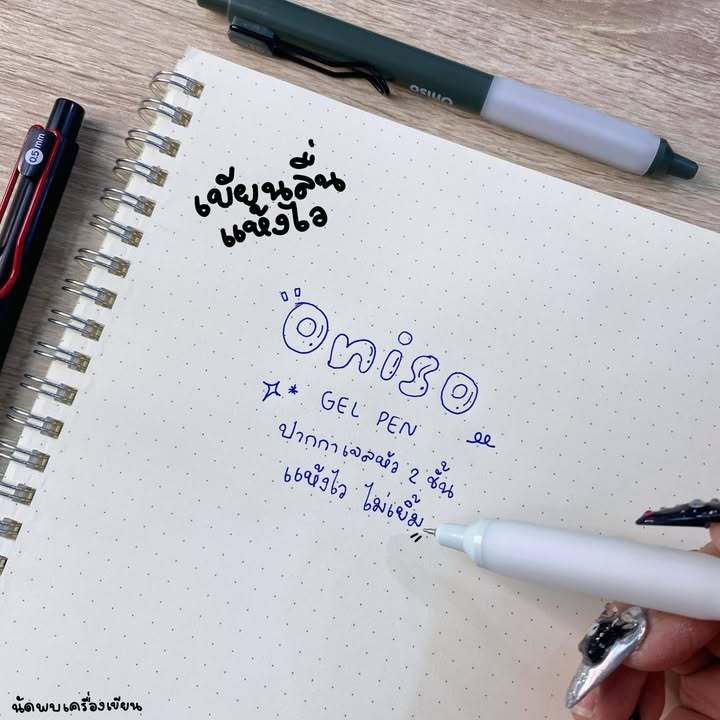 เขียนลื่น
แห้งไว
oniso
0.5 mm
Oniso
GEL PEN
ปากกาเจลหัว 2 ชั้น
แห้งไว ไม่เยิ้ม
นัดพบเครื่องเขียน